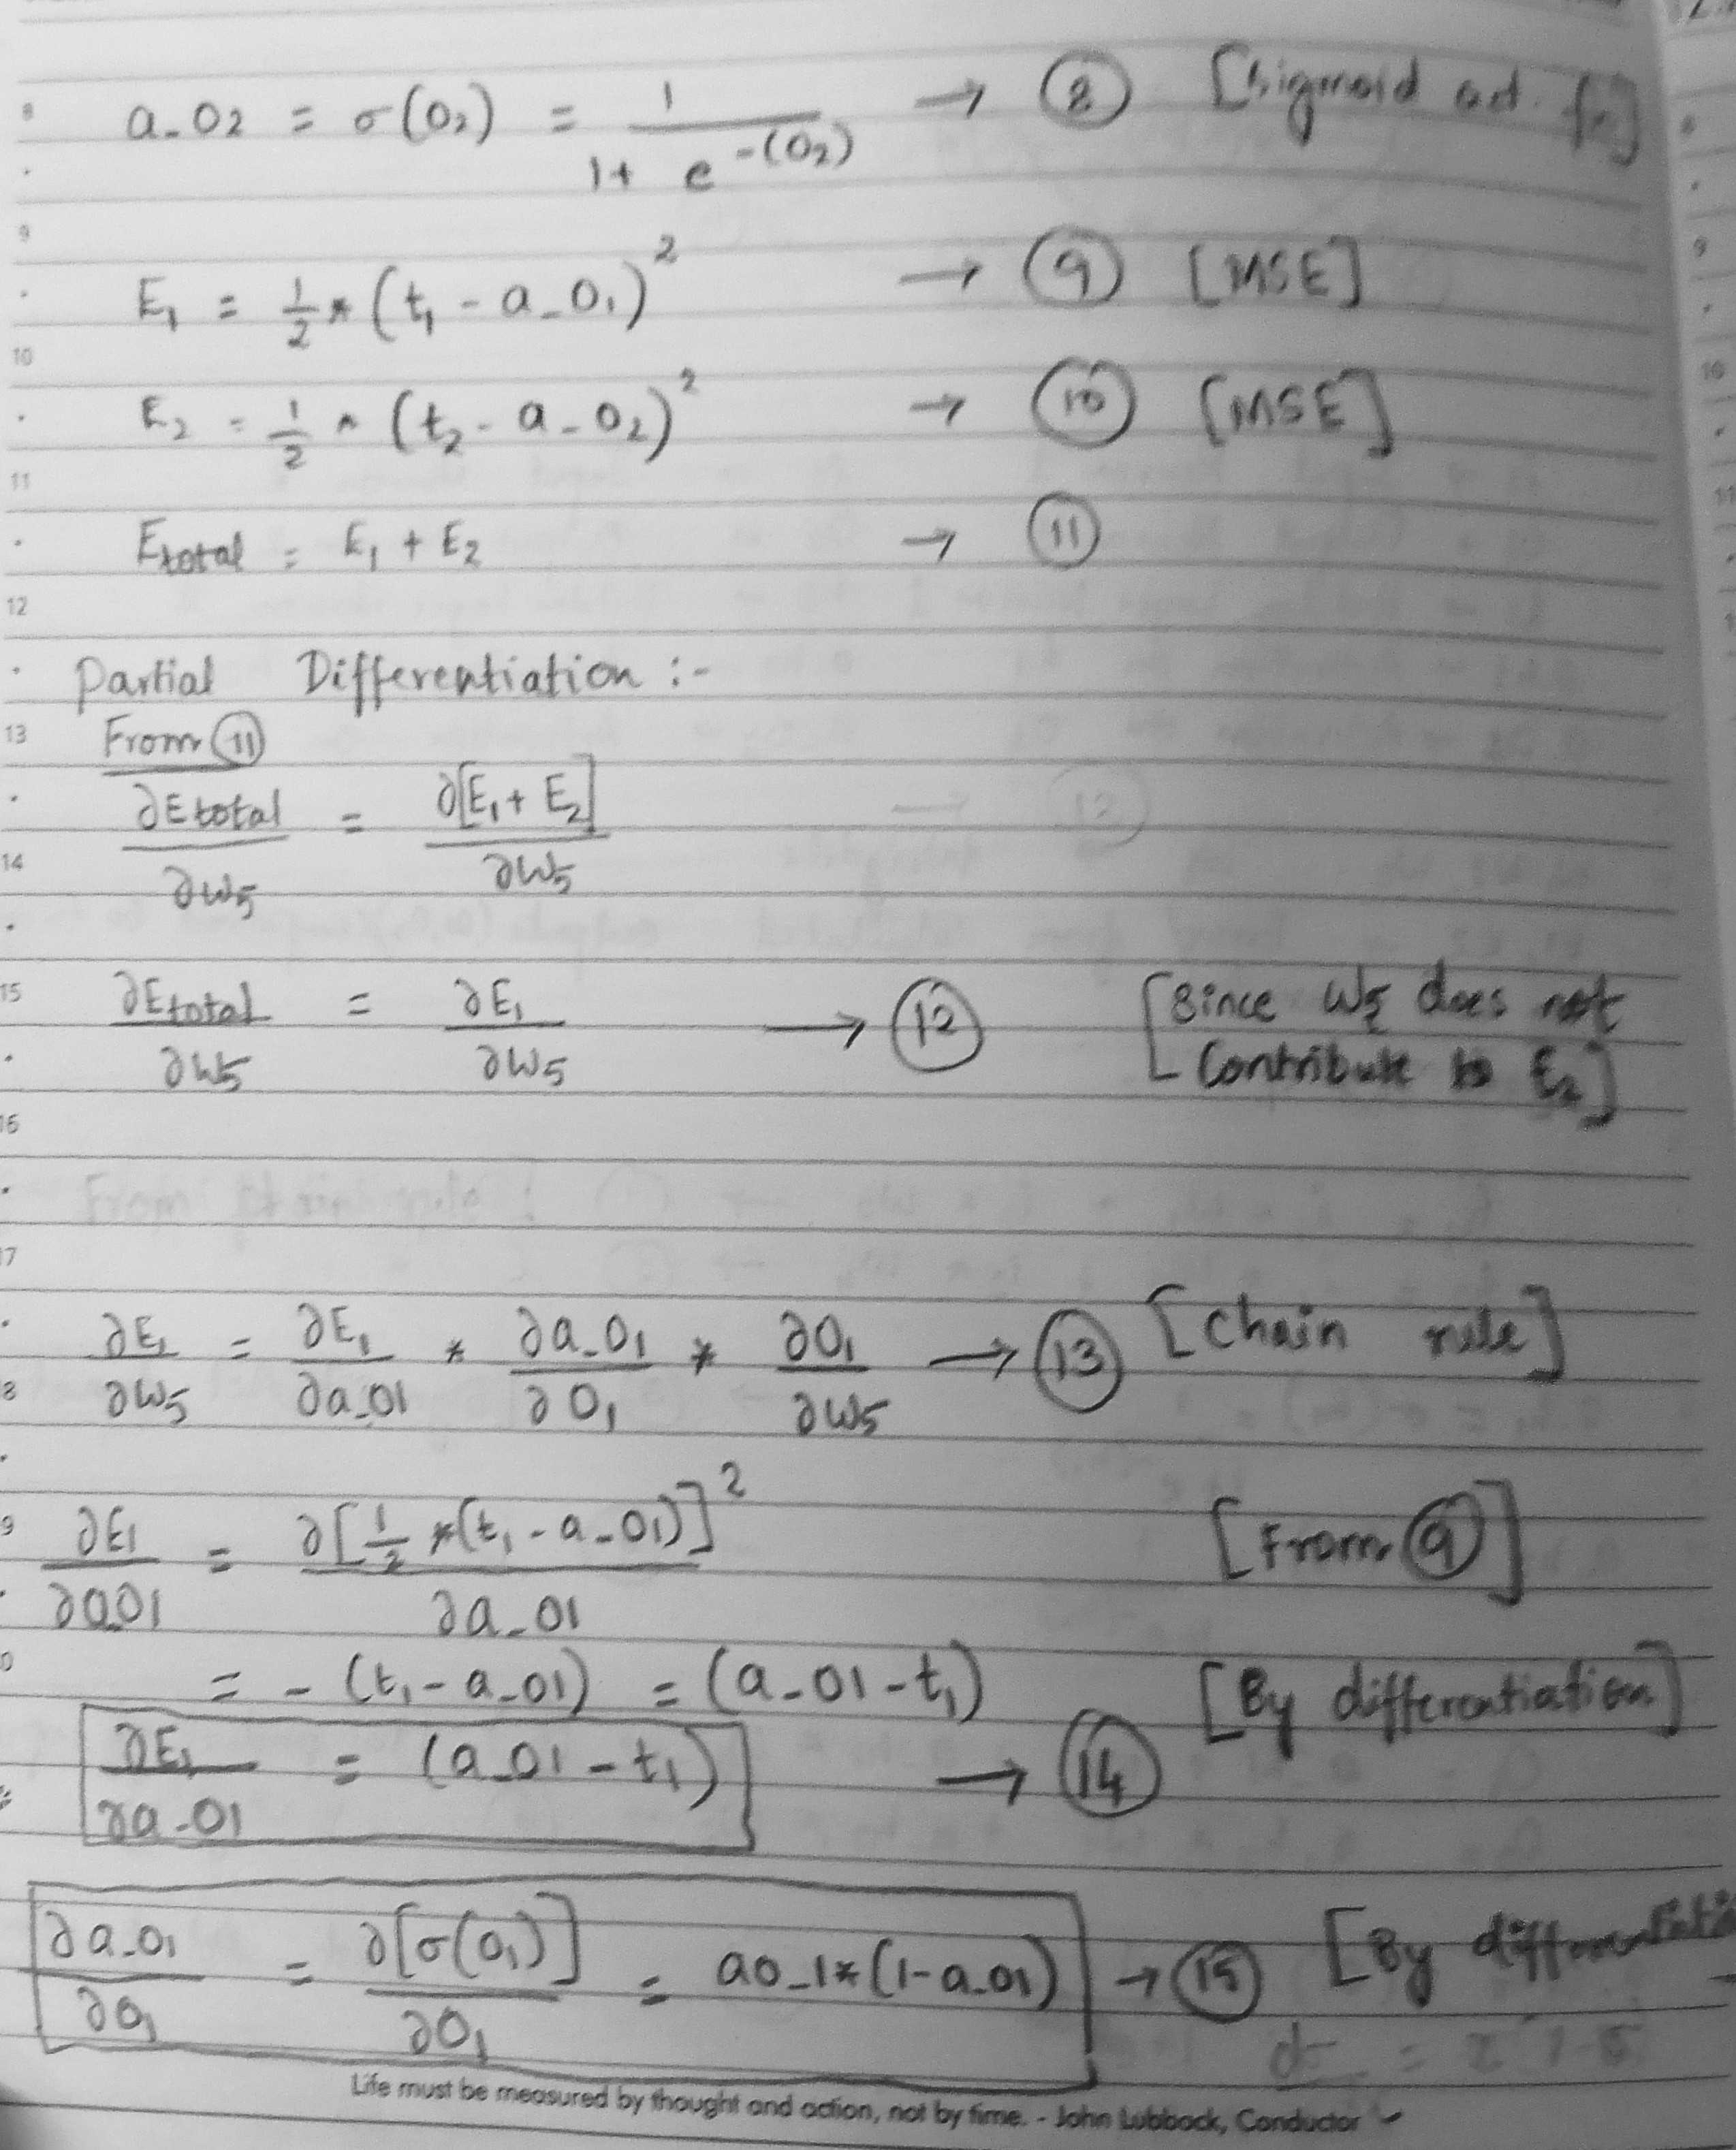 a_O2 = σ(O2) = 1 / (1 + e^-(O2)) → (8) [Sigmoid act. fn]
E1 = 1/2 * (t1 - a_O1)^2 → (9) [MSE]
E2 = 1/2 * (t2 - a_O2)^2 → (10) [MSE]
Etotal = E1 + E2 → (11)
Partial Differentiation :-
From (11)
∂Etotal / ∂W5 = ∂[E1 + E2] / ∂W5
∂Etotal / ∂W5 = ∂E1 / ∂W5 → (12) [Since W5 does not
Contribute to E2]
∂E1 / ∂W5 = ∂E1 / ∂a_O1 * ∂a_O1 / ∂O1 * ∂O1 / ∂W5 → (13) [Chain rule]
∂E1 / ∂a_O1 = ∂[1/2 * (t1 - a_O1)]^2 / ∂a_O1 [From (9)]
= - (t1 - a_O1) = (a_O1 - t1) [By differentiation]
∂E1 / ∂a_O1 = (a_O1 - t1) → (14)
∂a_O1 / ∂O1 = ∂[σ(O1)] / ∂O1 = aO_1 * (1 - a_O1) → (15) [By differentiatio
Life must be measured by thought and action, not by time. - John Lubbock, Conductor